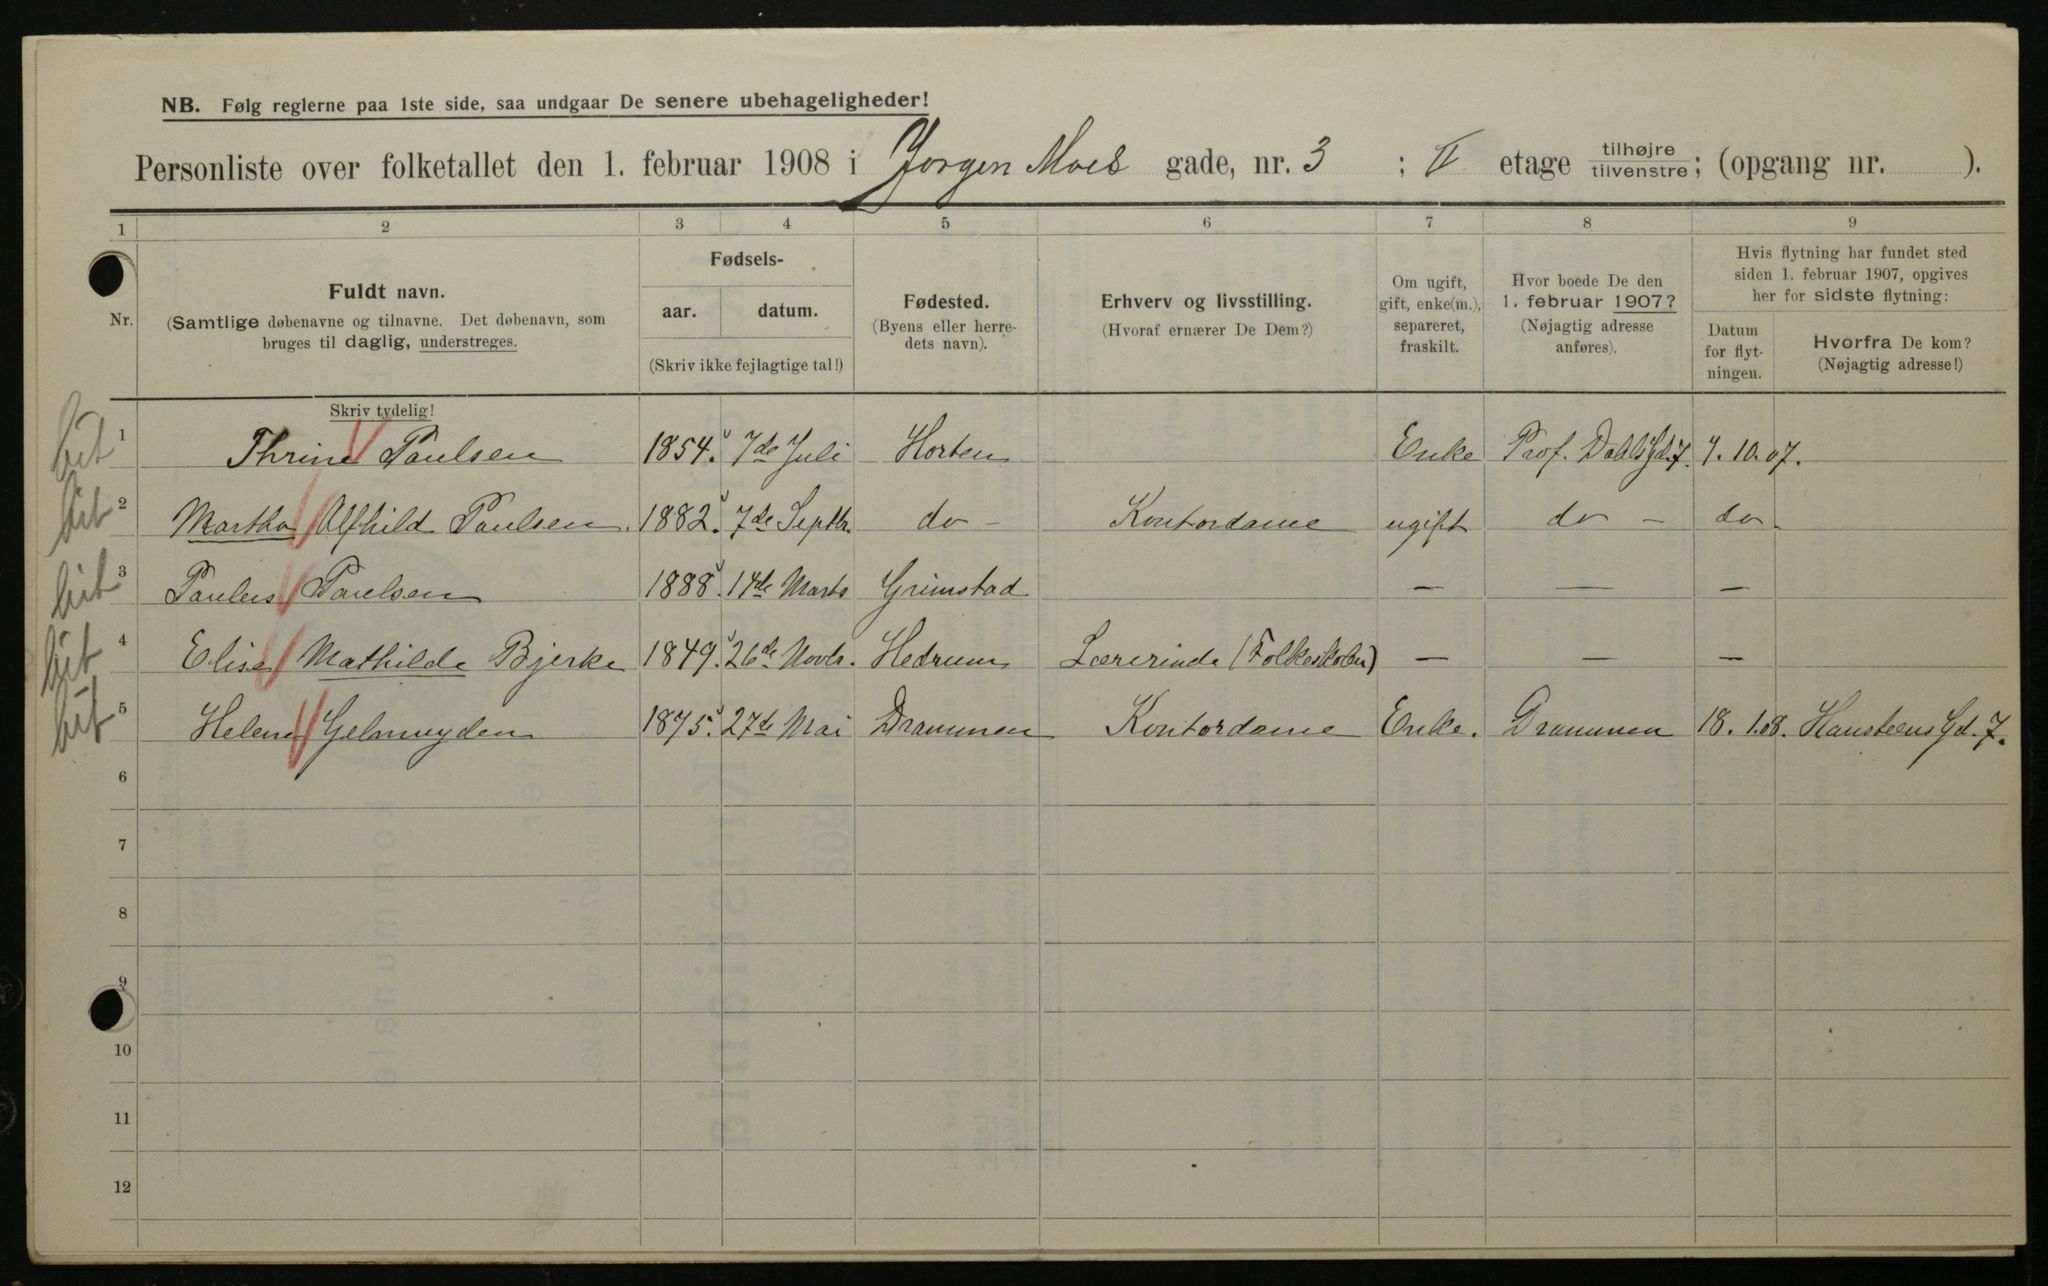 NB. Følg reglerne paa 1ste side, saa undgaar De senere ubehageligheder!
Personliste over folketallet den 1. februar 1908 i Jørgen Moes gade, nr. 3 ; II etage tilhøjre/tilvenstre; (opgang nr. ).
1 2 3 4 5 6 7 8 9
Nr.
Fuldt navn.
(Samtlige døbenavne og tilnavne. Det døbenavn, som
bruges til daglig, understreges.
Skriv tydelig!
Fødsels-
aar. datum.
(Skriv ikke fejlagtige tal!)
Fødested.
(Byens eller herre-
dets navn).
Erhverv og livsstilling.
(Hvoraf ernærer De Dem?)
Om ugift,
gift, enke(m.),
separeret,
fraskilt.
Hvor boede De den
1. februar 1907?
(Nøjagtig adresse
anføres).
Hvis flytning har fundet sted
siden 1. februar 1907, opgives
her for sidste flytning:
Datum
for flyt-
ningen.
Hvorfra De kom?
(Nøjagtig adresse!)
1 Thrine Paulsen 1854. 7de Juli Horten Enke Prof. Dahls Gd. 7. 7. 10. 07.
2 Martha Alfhild Paulsen. 1882. 7de Septbr. do - Kontordame ugift do - do -
3 Paulus Paulsen 1888. 14de Marts Grimstad — — —
4 Elise Mathilde Bjerke 1849. 26de Novbr. Hedrum Lærerinde (Folkeskolen) — — —
5 Helene Gelmuyden 1875. 27de Mai Drammen Kontordame Enke. Drammen 18. 1. 08. Hansteens Gd. 7.
6
7
8
9
10
11
12